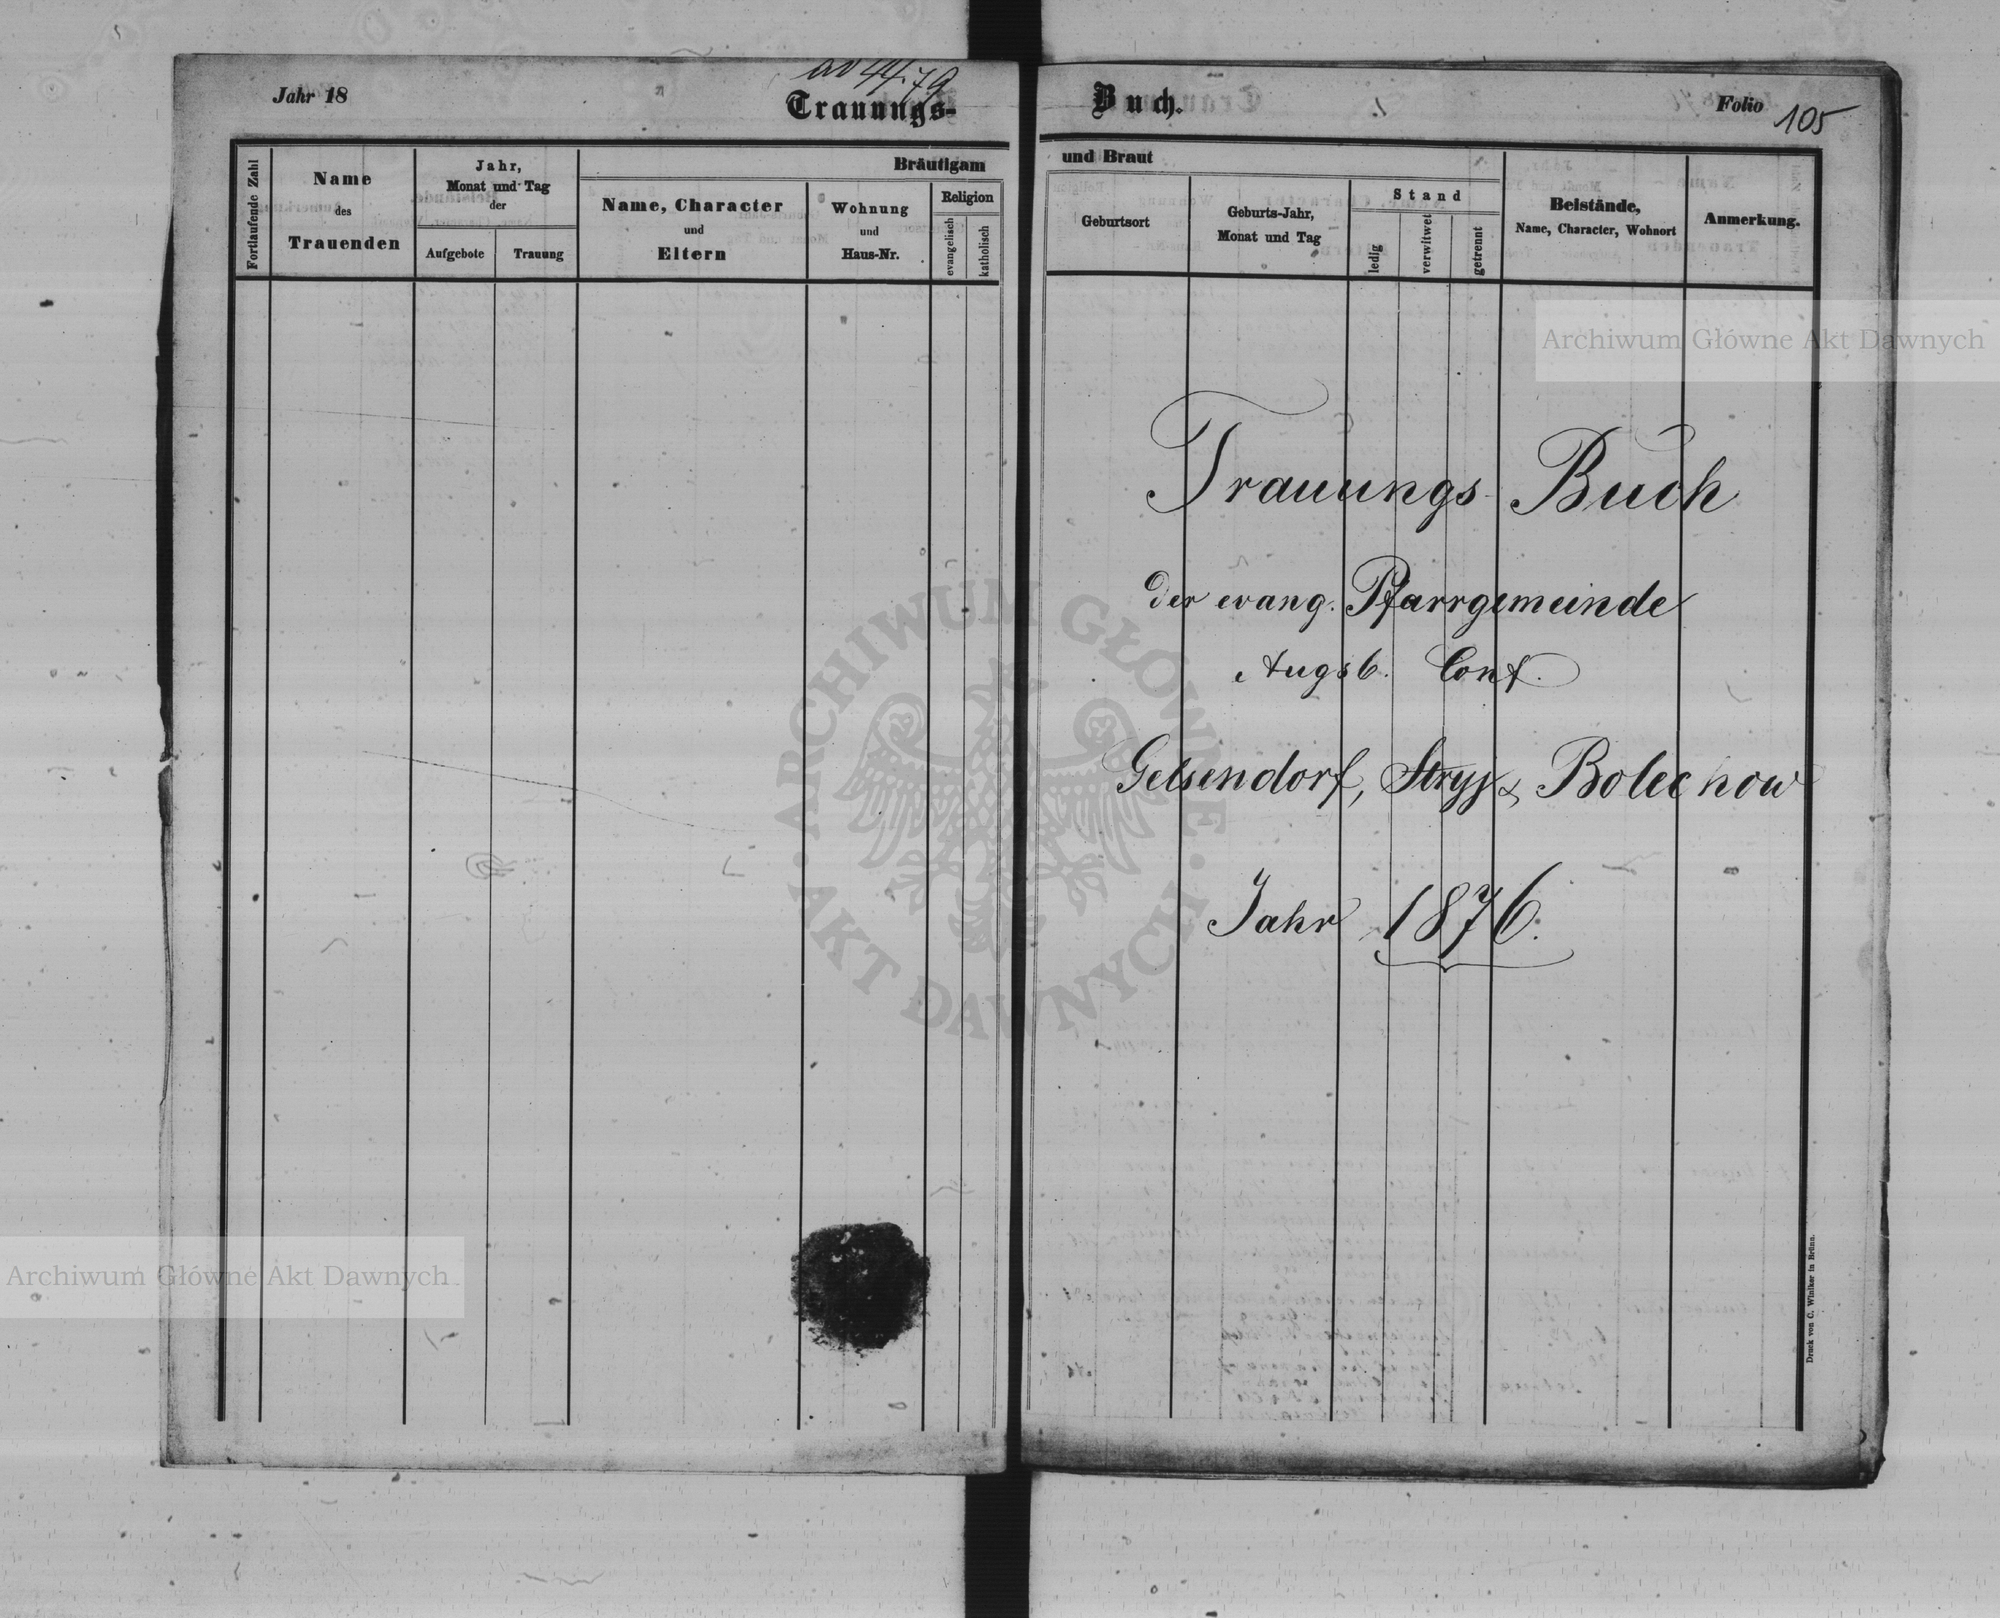 ad 44.79
Jahr 18
Trauungs-
Fortlaufende Zahl
Name
des
Trauenden
Jahr,
Monat und Tag
der
Aufgebote
Trauung
Bräutigam
Name, Character
und
Eltern
Wohnung
und
Haus-Nr.
Religion
evangelisch
katholisch
Buch.
Folio 105
und Braut
Geburtsort
Geburts-Jahr,
Monat und Tag
Stand
ledig
verwitwet
getrennt
Beistände,
Name, Character, Wohnort
Anmerkung.
Trauungs-Buch
der evang. Pfarrgemeinde
Augsb. Conf.
Gelsendorf, Stryj & Bolechow
Jahr 1876.
Druck von C. Winiker in Brünn.
Archiwum Główne Akt Dawnych
ARCHIWUM GŁÓWNE · AKT DAWNYCH ·
Archiwum Główne Akt Dawnych